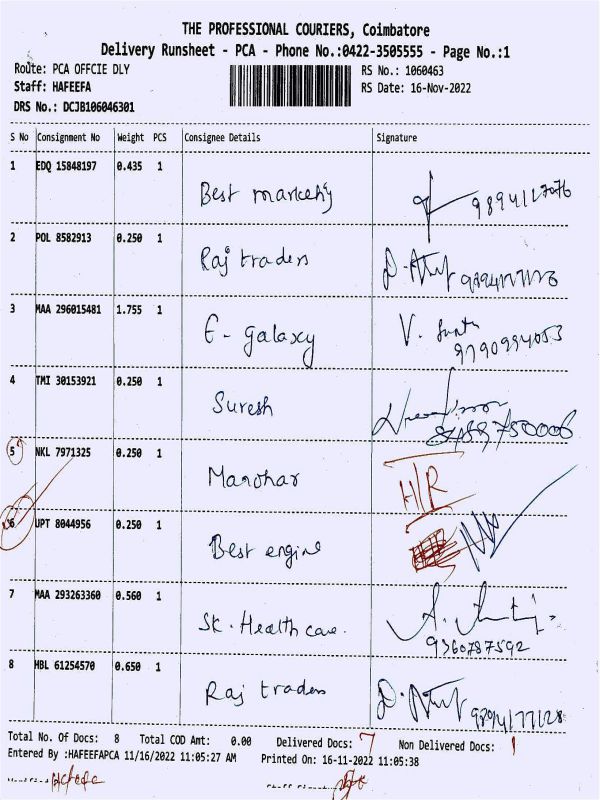 THE PROFESSIONAL COURIERS, Coimbatore
Delivery Runsheet - PCA - Phone No.:0422-3505555 - Page No.:1
Route: PCA OFFCIE DLY
RS No.: 1060463
Staff: HAFEEFA
RS Date: 16-Nov-2022
DRS No.: DCJB106046301
S No Consignment No Weight PCS Consignee Details Signature
1 EDQ 15848197 0.435 1
Best marketing
2 POL 8582913 0.250 1
Raj traders
3 MAA 296015481 1.755 1
E- galaxy
V.
4 TMI 30153921 0.250 1
Suresh
5 NKL 7971325 0.250 1
Manohar H/R
6 UPT 8044956 0.250 1
Best engine
7 MAA 293263360 0.560 1
SK. Health care.
9360787592
8 HBL 61254570 0.650 1
Raj traders
Total No. Of Docs: 8 Total COD Amt: 0.00 Delivered Docs: 7 Non Delivered Docs: 1
Entered By :HAFEEFAPCA 11/16/2022 11:05:27 AM Printed On: 16-11-2022 11:05:38